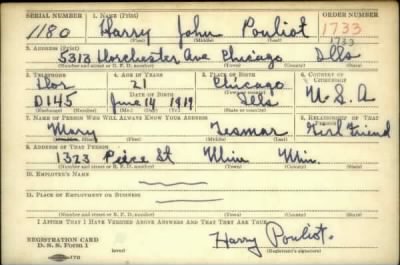 SERIAL NUMBER 1. NAME (Print) ORDER NUMBER
1180 Harry John Pouliot 1733
1733
(First) (Middle) (Last)
2. ADDRESS (Print)
5313 Dorchester Ave Chicago Ills
(Number and street or R. F. D. number) (Town) (County) (State)
3. TELEPHONE 4. AGE IN YEARS 5. PLACE OF BIRTH 6. COUNTRY OF CITIZENSHIP
Dor 21 Chicago
DATE OF BIRTH
0145 June 14 1919 Ills U.S.A
7. NAME OF PERSON WHO WILL ALWAYS KNOW YOUR ADDRESS 8. RELATIONSHIP OF THAT PERSON
Mary Tesmar Girl Friend
9. ADDRESS OF THAT PERSON
1323 St Minn Minn.
(Number and street or R. F. D. number) (Town) (County) (State)
10. EMPLOYER'S NAME
11. PLACE OF EMPLOYMENT OR BUSINESS
(Number and street or R. F. D. number) (Town) (County) (State)
I AFFIRM THAT I HAVE VERIFIED ABOVE ANSWERS AND THAT THEY ARE TRUE.
REGISTRATION CARD
D. S. S. Form 1
Harry Pouliot.
(Registrant's signature)